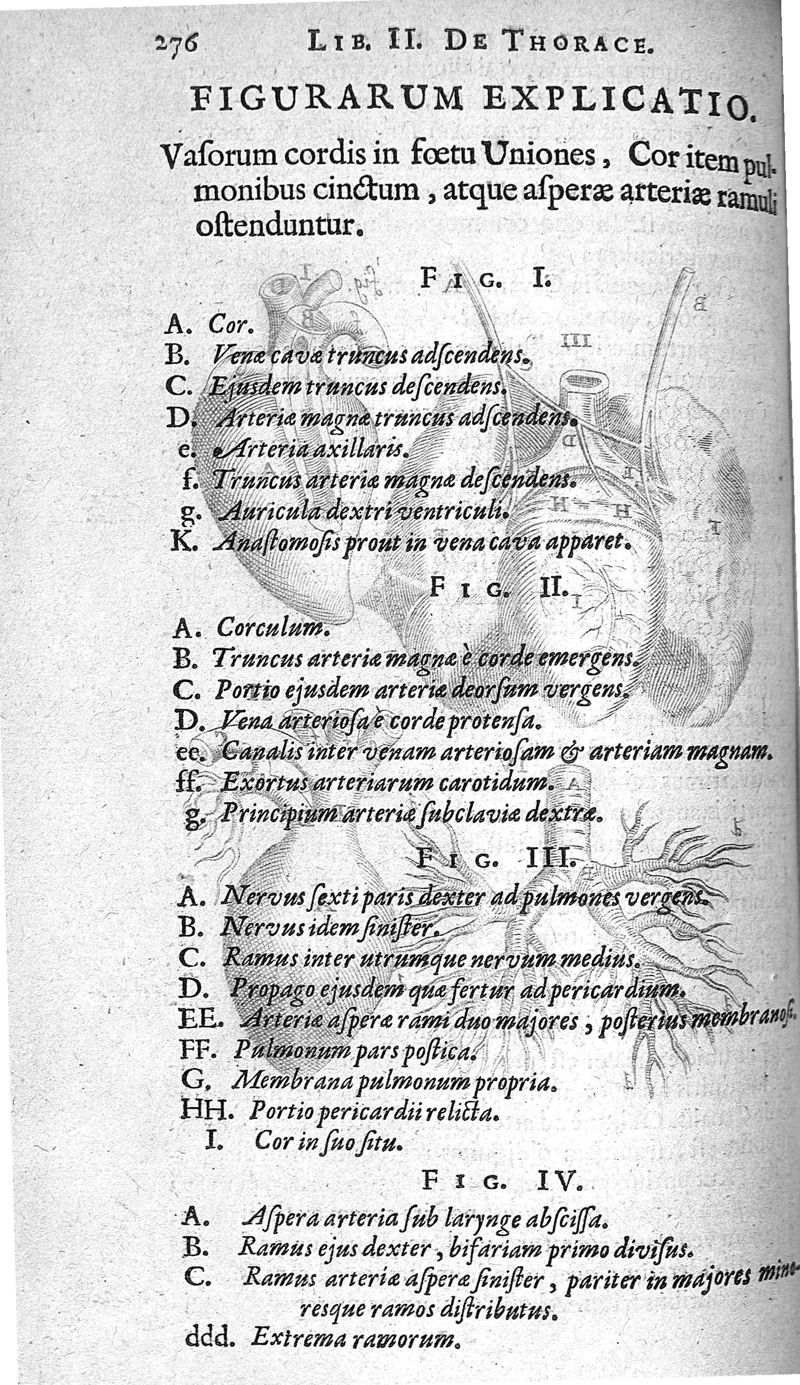 276 LIB. II. DE THORACE.
FIGURARUM EXPLICATIO.
Vaſorum cordis in fœtu Uniones, Cor item pul-
monibus cinctum, atque aſperæ arteriæ ramuli
oſtenduntur.
FIG. I.
A. Cor.
B. Venæ cavæ truncus adſcendens.
C. Ejusdem truncus deſcendens.
D. Arteriæ magnæ truncus adſcendens.
e. Arteria axillaris.
f. Truncus arteriæ magnæ deſcendens.
g. Auricula dextri ventriculi.
K. Anaſtomoſis prout in vena cava apparet.
FIG. II.
A. Corculum.
B. Truncus arteriæ magnæ è corde emergens.
C. Portio ejusdem arteriæ deorſum vergens.
D. Vena arterioſa è corde protenſa.
ee. Canalis inter venam arterioſam & arteriam magnam.
ff. Exortus arteriarum carotidum.
g. Principium arteriæ ſubclaviæ dextræ.
FIG. III.
A. Nervus ſexti paris dexter ad pulmones vergens.
B. Nervus idem ſiniſter.
C. Ramus inter utrumque nervum medius.
D. Propago ejusdem quæ fertur ad pericardium.
EE. Arteriæ aſperæ rami duo majores, poſterius membranoſi.
FF. Pulmonum pars poſtica.
G. Membrana pulmonum propria.
HH. Portio pericardii relicta.
I. Cor in ſuo ſitu.
FIG. IV.
A. Aſpera arteria ſub larynge abſciſſa.
B. Ramus ejus dexter, bifariam primo diviſus.
C. Ramus arteriæ aſperæ ſiniſter, pariter in majores mino-
resque ramos diſtributus.
ddd. Extrema ramorum.